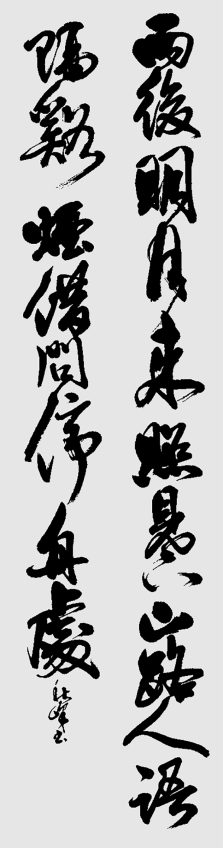 雨後明月來照見下山路人語
隔谿煙借問停舟處